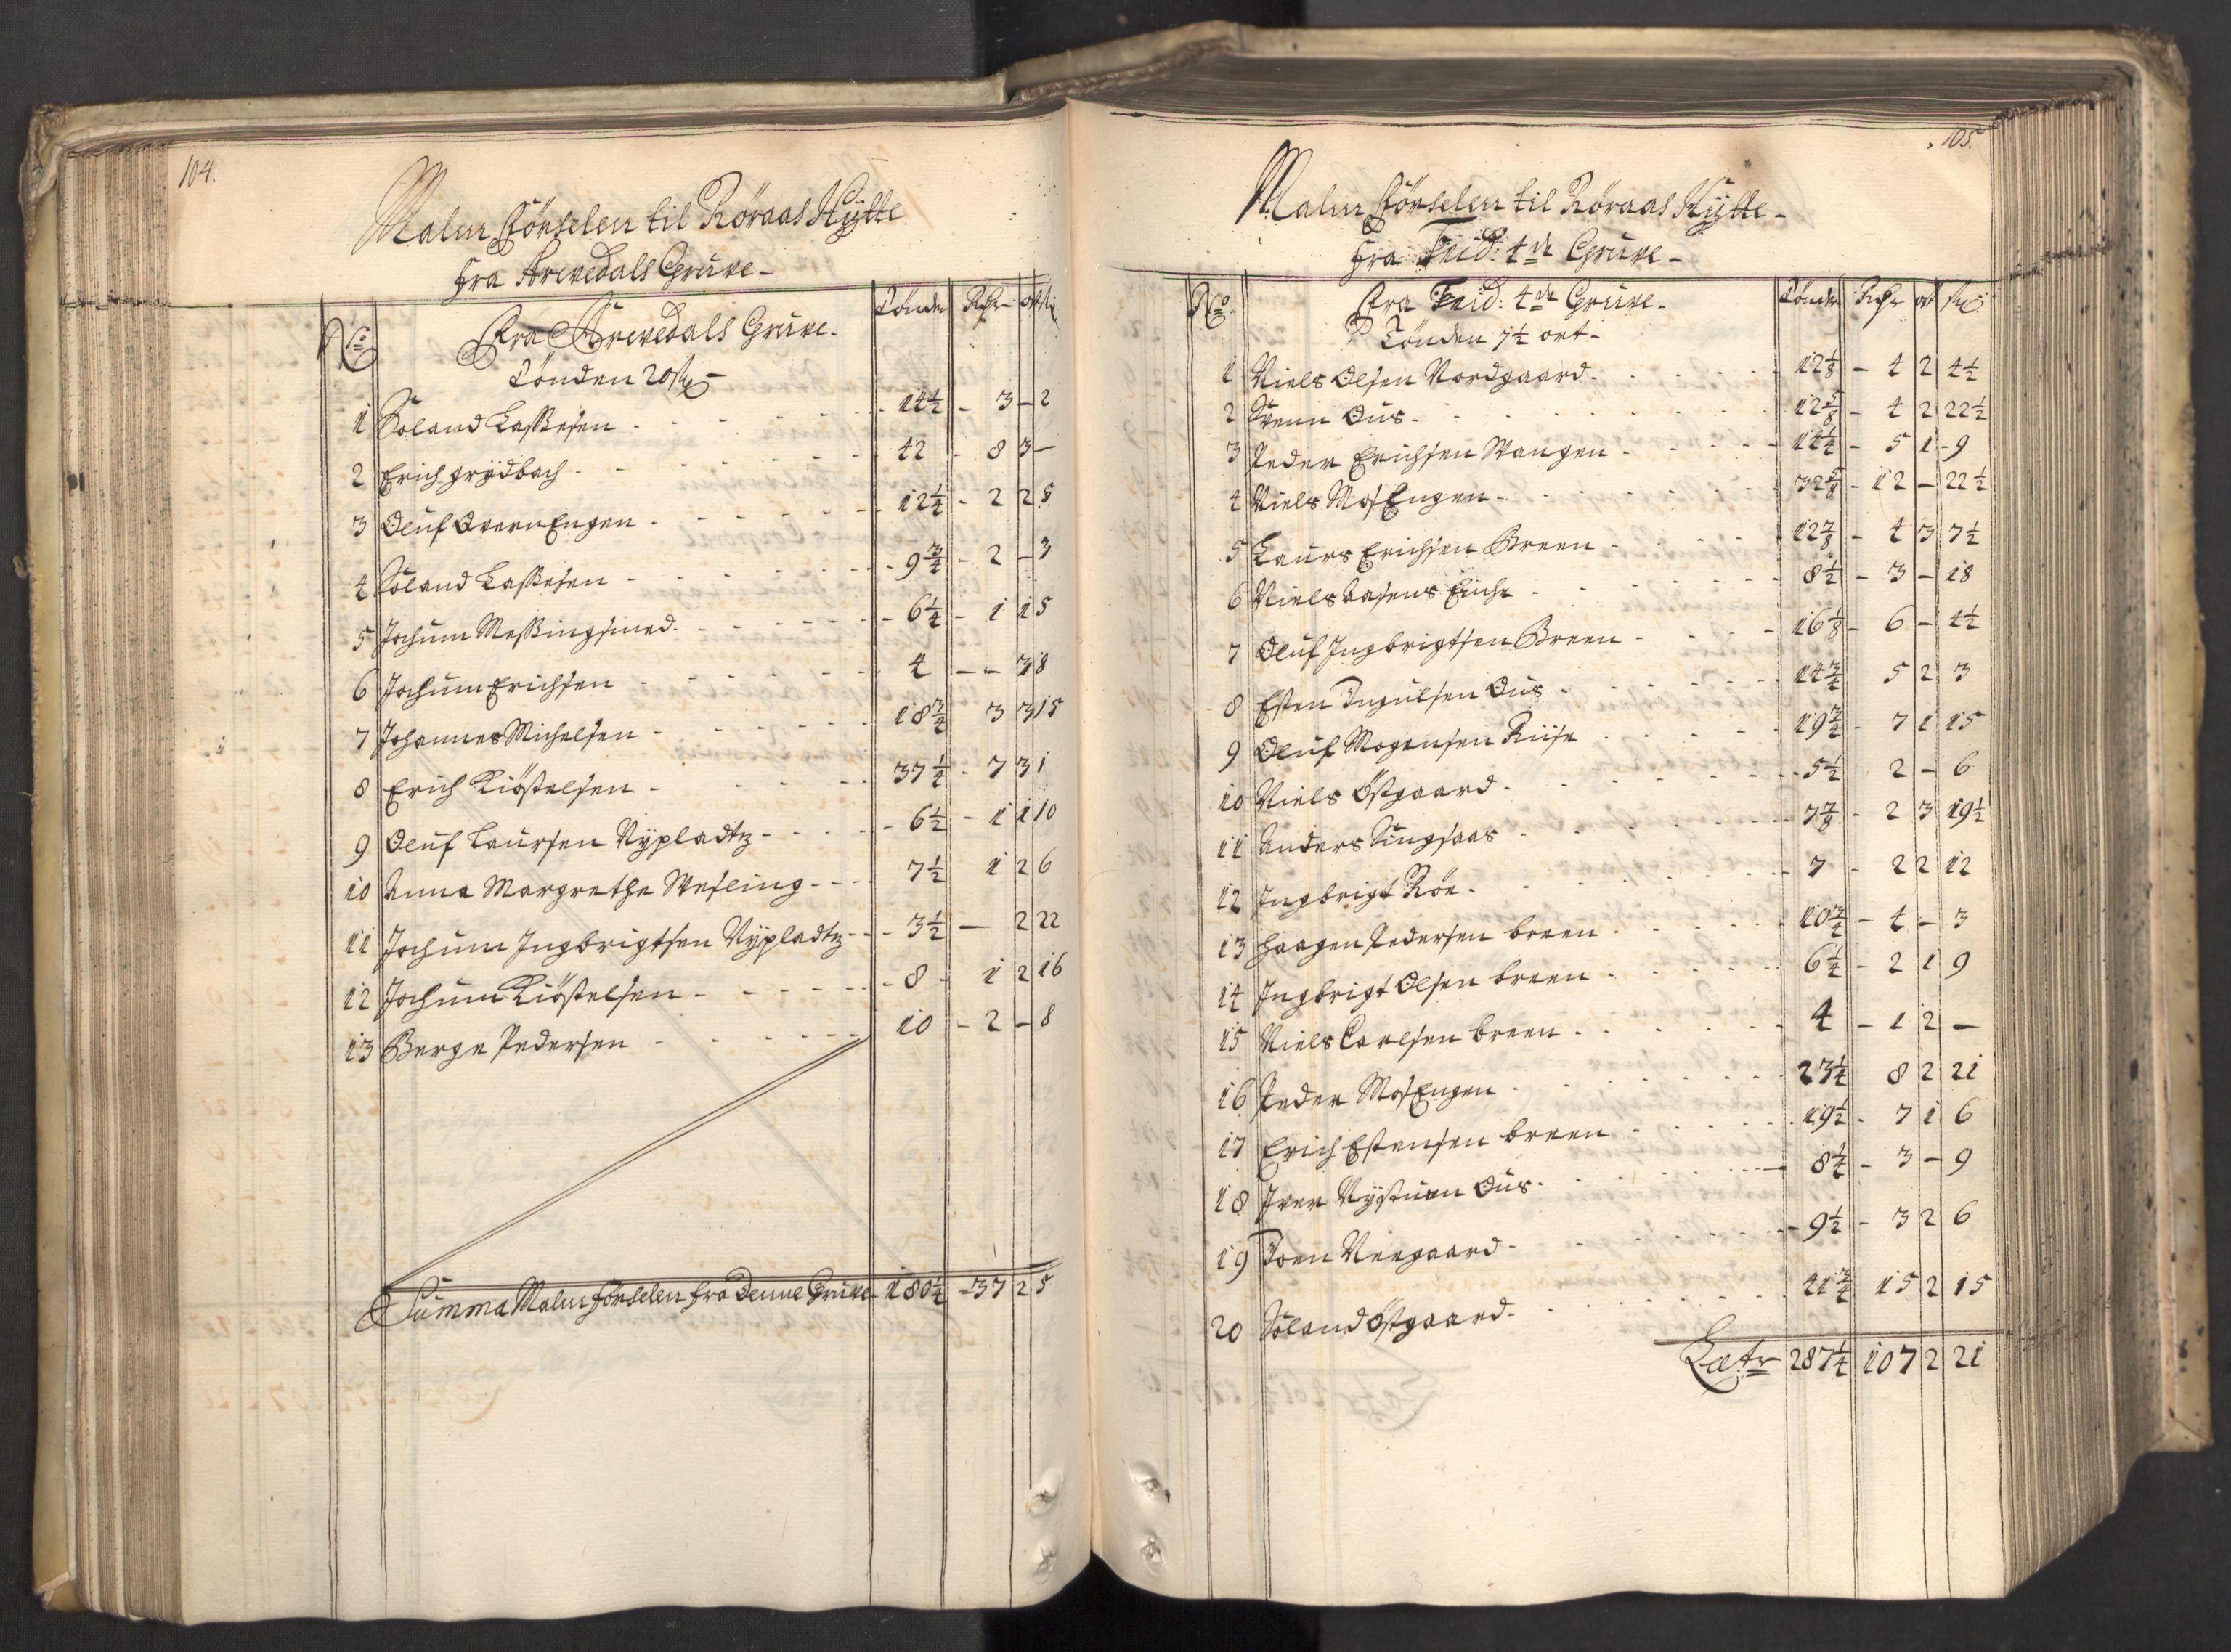 104.
Malm Förselen til Röraas Hÿtte
fra Arvedals Grúve -
No Fra Arvedals Grúve. Tönder Rdr ort sk
Tönden 20 sk -
1 Roland Lassesen - 14½ - 3 - 2
2 Erich Grÿdbach - 42 - 8 3 -
3 Olúf Overn Engen - 12¼ - 2 2 5
4 Roland Lassesen - 9¾ - 2 - 3
5 Jochúm Messingsmed - 6¼ - 1 1 5
6 Jochúm Erichsen - 4 - - 3 8
7 Johannes Michelsen - 18¾ 3 3 15
8 Erich Kiöstelsen - 37¼ - 7 3 1
9 Olúf Laúrsen Nÿpladtz - 6½ - 1 1 10
10 Anna Margrethe Wesling - 7½ 1 2 6
11 Jochúm Ingbrigtsen Nÿpladtz - 3½ - 2 22
12 Jochúm Kiöstelsen - 8 - 1 2 16
13 Berge Pedersen - 10 - 2 - 8
Súmma Malm förselen fra denne Grúve 180¼ - 37 2 5
105.
Malm Förselen til Röraas Hÿtte -
fra Frid: 4de Grúve -
No Fra Frid: 4de Grúve - Tönder Rdr ort sk
Tönden 1½ ort -
1 Niels Olsen Nordgaard - 12⅛ - 4 2 4½
2 Svenn Oús - 12⅝ - 4 2 22½
3 Peder Erichsen Wangen - 14¼ - 5 1 - 9
4 Niels MosEngen - 32⅝ - 12 - 22½
5 Laúrs Erichsen Breen - 12⅞ - 4 3 7½
6 Niels Aasens Enche - 8½ - 3 - 18
7 Olúf Ingbrigtsen Breen - 16⅛ - 6 - 4½
8 Esten Ingúlsen Oús - 14¾ 5 2 3
9 Olúf Mogensen Riise - 19¾ - 7 1 15
10 Niels Östgaard - 5½ 2 - 6
11 Anders Singsaas - 7⅞ - 2 3 19½
12 Ingbrigt Röe - 7 - 2 2 12
13 Haagen Pedersen breen - 10¾ - 4 - 3
14 Ingbrigt Olsen breen - 6¼ - 2 1 9
15 Niels Carlsen breen - 4 - 1 2 -
16 Peder MosEngen - 23¼ 8 2 21
17 Erich Estensen breen - 19½ - 7 1 6
18 Iver Nÿstúen Oús - 8¼ - 3 - 9
19 Joen Neegaard - 9½ - 3 2 6
20 Roland Östgaard - 41¾ 15 2 15
Latr 287¼ 107 2 21